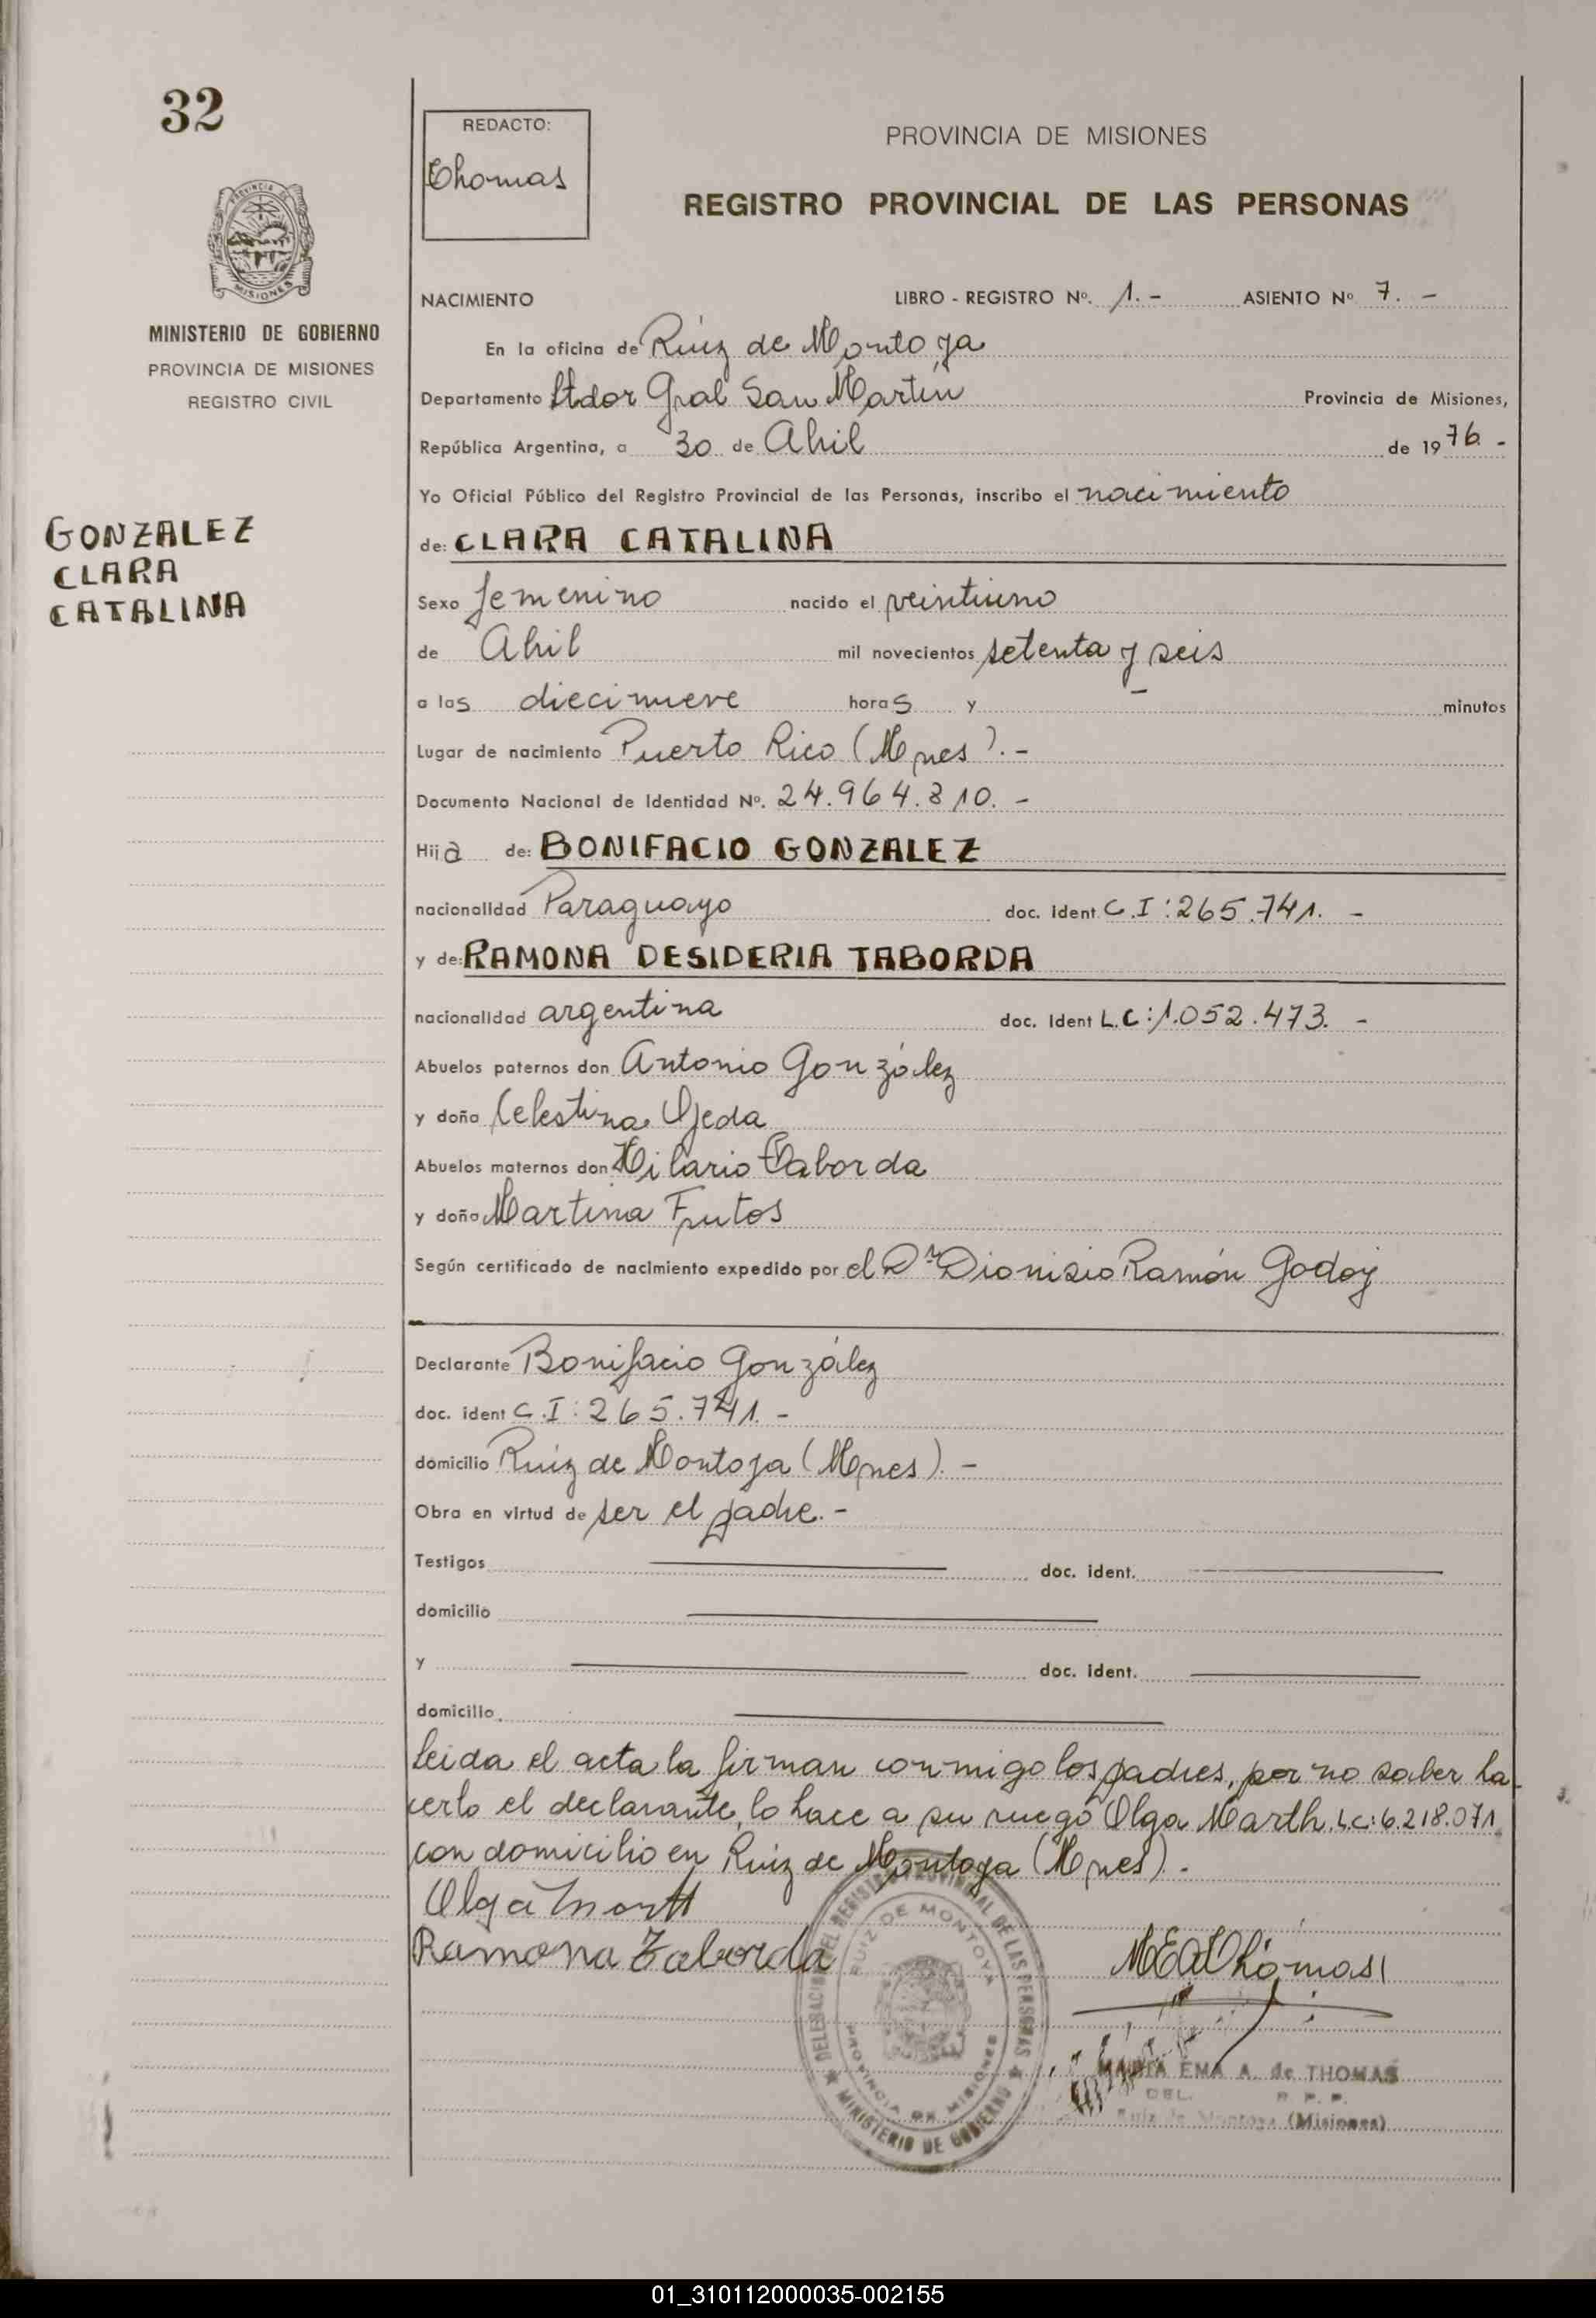 32
REDACTO:
Thomas
PROVINCIA DE MISIONES
REGISTRO PROVINCIAL DE LAS PERSONAS
PROVINCIA DE
MISIONES
MINISTERIO DE GOBIERNO
PROVINCIA DE MISIONES
REGISTRO CIVIL
GONZALEZ
CLARA
CATALINA
NACIMIENTO LIBRO - REGISTRO Nº. 1. - ASIENTO Nº 7. -
En la oficina de Ruiz de Montoya
Departamento Ltdor Gral San Martín Provincia de Misiones,
República Argentina, a 30 de Abril de 1976 -
Yo Oficial Público del Registro Provincial de las Personas, inscribo el nacimiento
de: CLARA CATALINA
Sexo femenino nacido el veintiuno
de Abril mil novecientos setenta y seis
a las diecinueve horas y - minutos
Lugar de nacimiento Puerto Rico (Mnes). -
Documento Nacional de Identidad Nº. 24.964.310. -
Hija de: BONIFACIO GONZALEZ
nacionalidad Paraguayo doc. Ident C.I: 265.741. -
y de: RAMONA DESIDERIA TABORDA
nacionalidad argentina doc. Ident L.C: 1.052.473. -
Abuelos paternos don Antonio González
y doña Celestina Ojeda
Abuelos maternos don Hilario Taborda
y doña Martina Frutos
Según certificado de nacimiento expedido por el Dr Dionisio Ramón Godoy
Declarante Bonifacio González
doc. ident C.I: 265.741. -
domicilio Ruiz de Montoya (Mnes). -
Obra en virtud de ser el padre. -
Testigos doc. ident.
domicilio
y doc. ident.
domicilio
Leida el acta la firman conmigo los padres, por no saber ha
cerlo el declarante, lo hace a su ruego Olga Marth. L.C: 6.218.071
con domicilio en Ruiz de Montoya (Mnes). -
Olga Marth
Ramona Taborda
M E A Thomas
DELEGACION DEL REGISTRO PROVINCIAL DE LAS PERSONAS
RUIZ DE MONTOYA
PROVINCIA DE MISIONES
MINISTERIO DE GOBIERNO
MARIA EMA A. de THOMAS
DEL. R. P. P.
Ruiz de Montoya (Misiones)
01_310112000035-002155